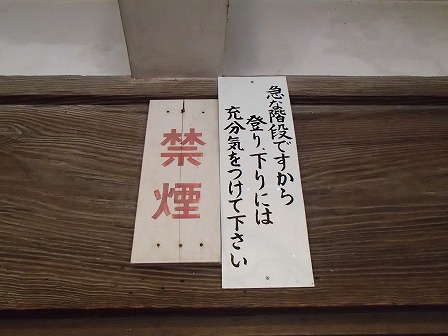 急な階段ですから
登り、下りには
充分気をつけて下さい
禁煙